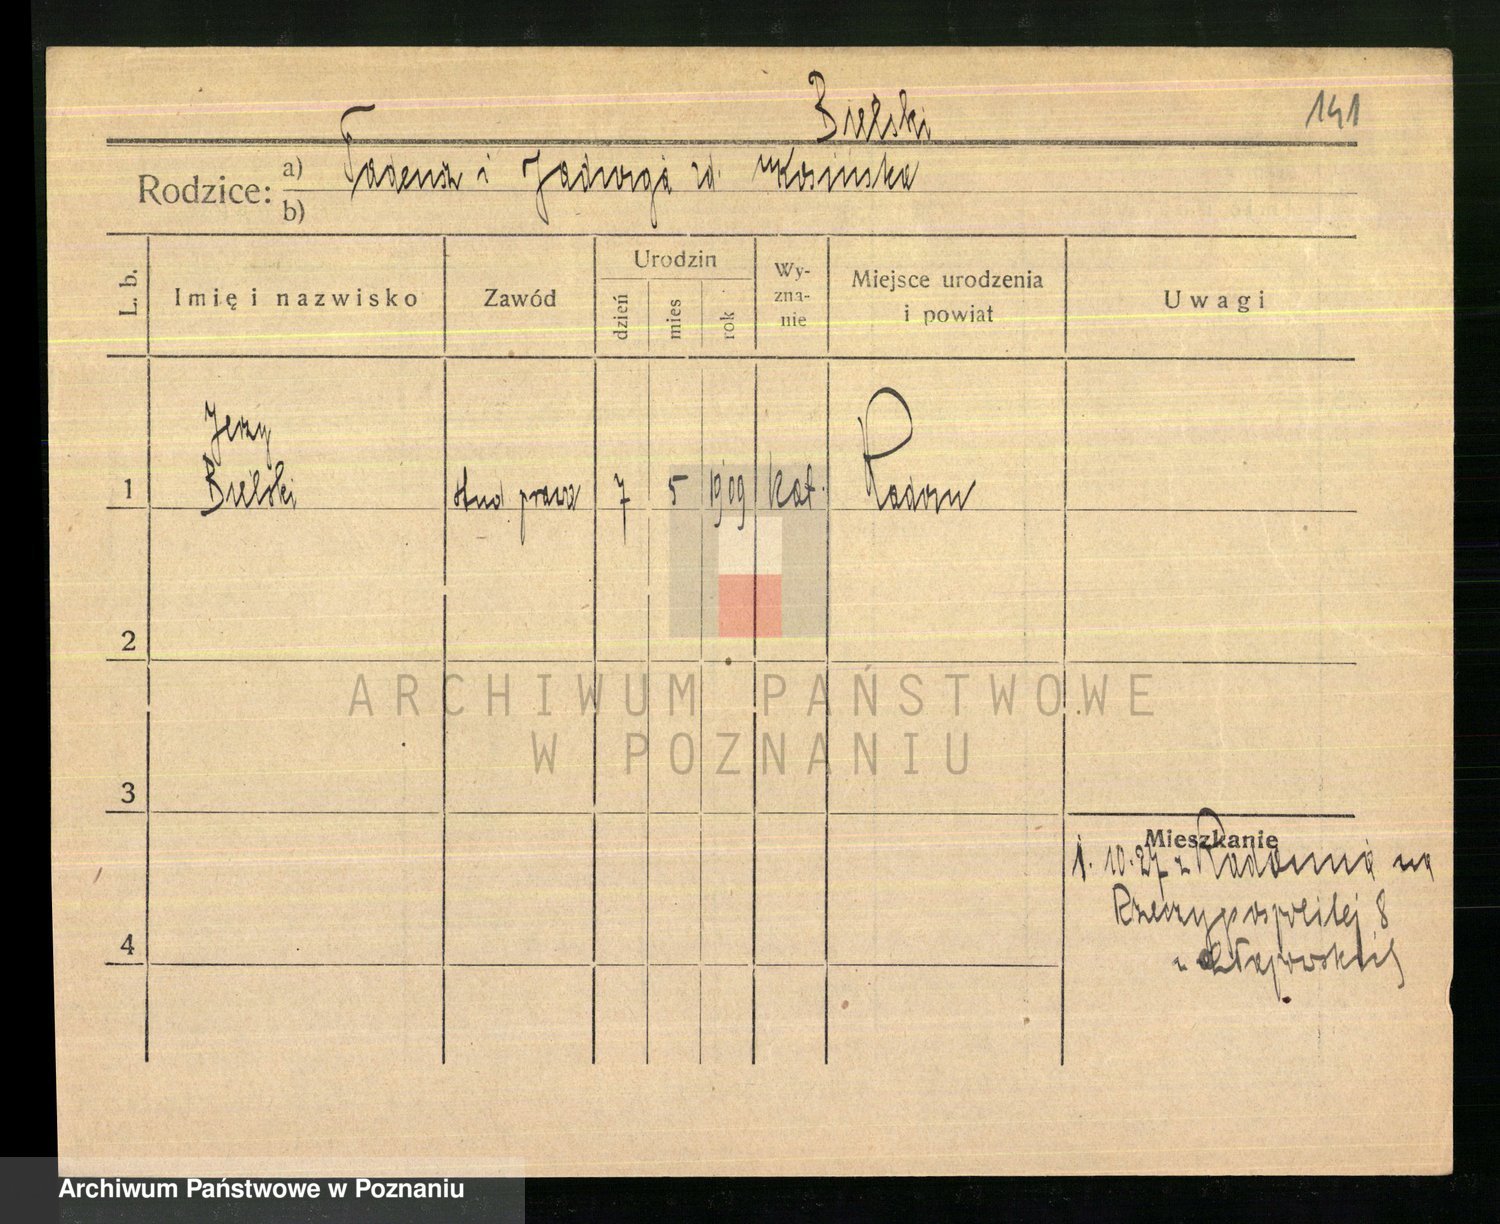 Bielski
141
Rodzice: a) Tadeusz i Jadwiga zd. Kosińska
b)
L. b.
Imię i nazwisko
Zawód
Urodzin
dzień
mies
rok
Wy-
zna-
nie
Miejsce urodzenia
i powiat
Uwagi
Jerzy
1 Bielski stud prawa 7 5 1909 kat. Radom
2
ARCHIWUM PAŃSTWOWE
W POZNANIU
3
Mieszkanie
1. 10.27 z Radomia na
Rzeczypospolitej 8
4
Archiwum Państwowe w Poznaniu